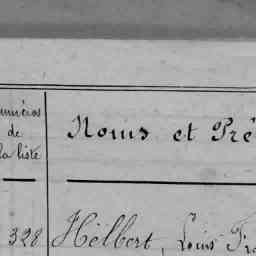 numéros
de
la liste
Noms et Pré
328 Hélbert, Louis Fra